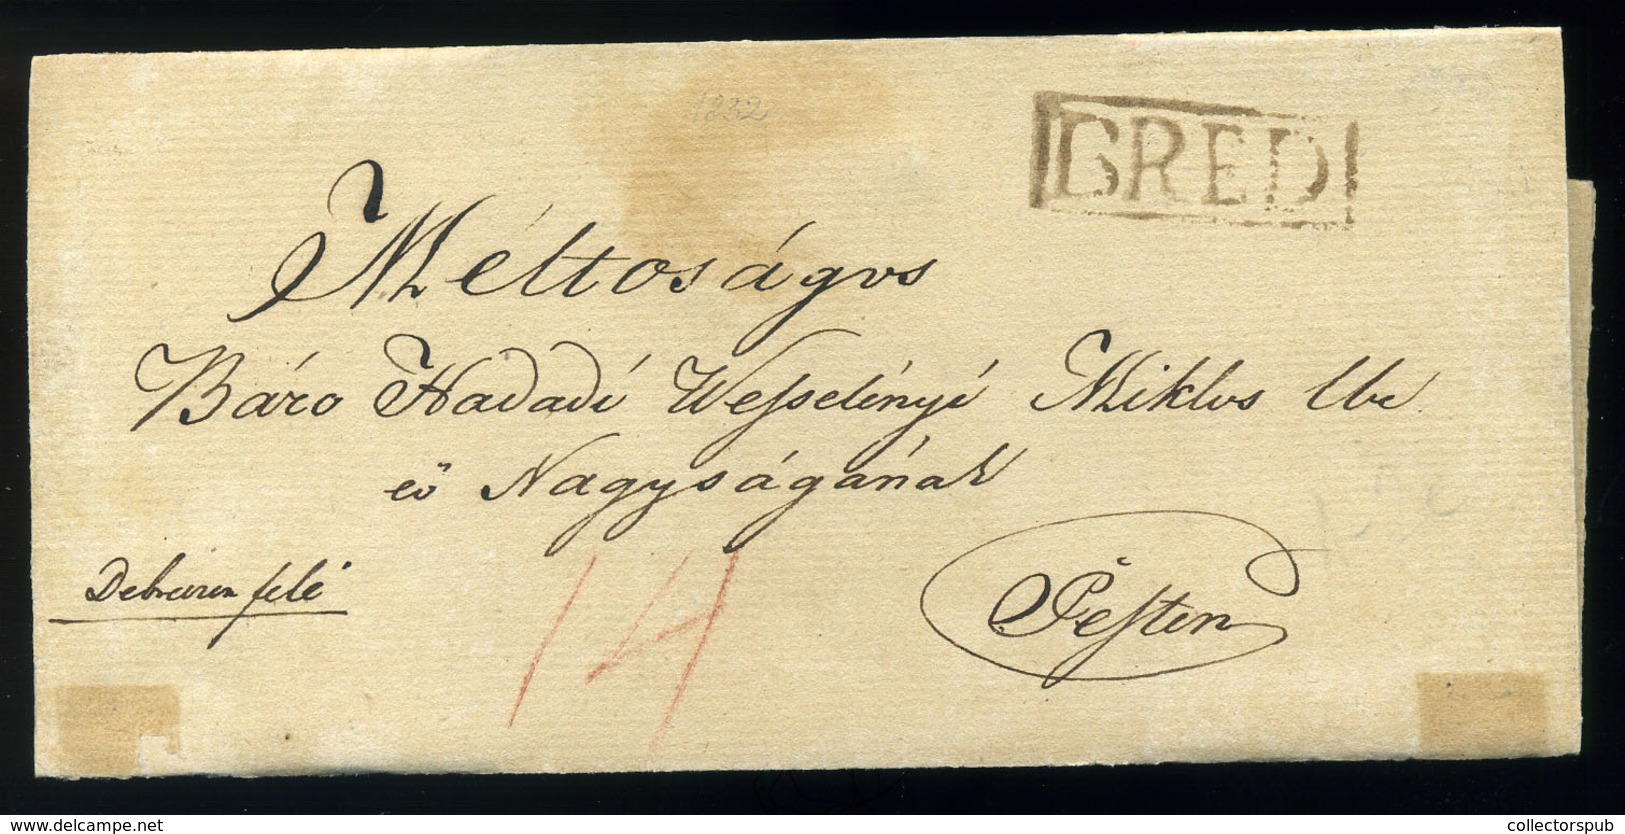 1832
BRED
Méltoságos
Báro Hadadi Wesselényi Miklos Ur
eő Nagyságának
Debreczen felé
14
Pesten
www.delcampe.net
collectorspub